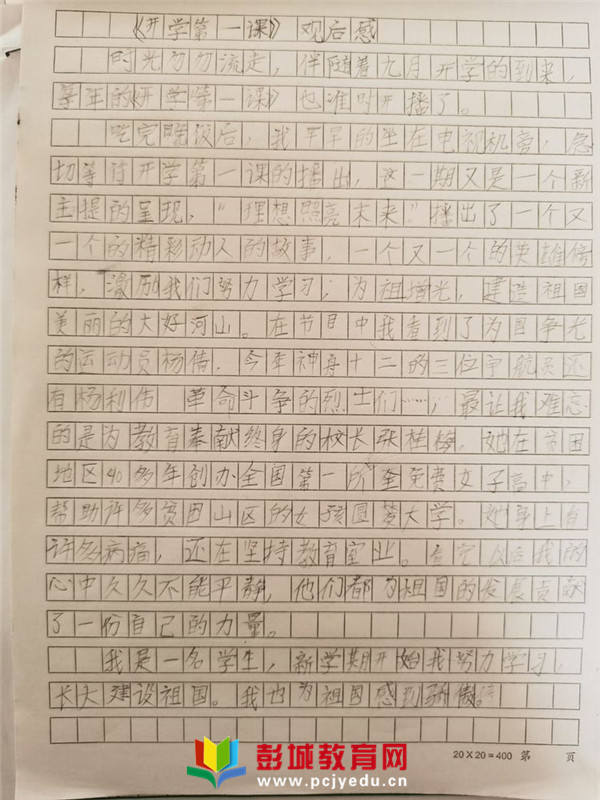 《开学第一课》观后感
时光匆匆流走，伴随着九月开学的到来，
每年的《开学第一课》也准时开播了。
吃完晚饭后，我早早的坐在电视机旁，急
切等待开学第一课的播出，这一期又是一个新
主提的呈现，“理想照亮未来”播出了一个又
一个的精彩动人的故事，一个又一个的英雄榜
样，激励我们努力学习；为祖增光，建造祖国
美丽的大好河山。在节目中我看到了为国争光
的运动员杨倩，今年神舟十二的三位宇航员还
有杨利伟 革命斗争的烈士们……，最让我难忘
的是为教育奉献终身的校长张桂梅，她在贫困
地区40多年创办全国第一所全免费女子高中，
帮助许多贫困山区的女孩圆梦大学。她身上有
许多病痛，还在坚持教育室业。看完以后我的
心中久久不能平静，他们都为祖国的发展贡献
了一份自己的力量。
我是一名学生，新学期开始我努力学习，
长大建设祖国。我也为祖国感到骄傲。
20×20=400 第 页
彭城教育网
www.pcjyedu.cn